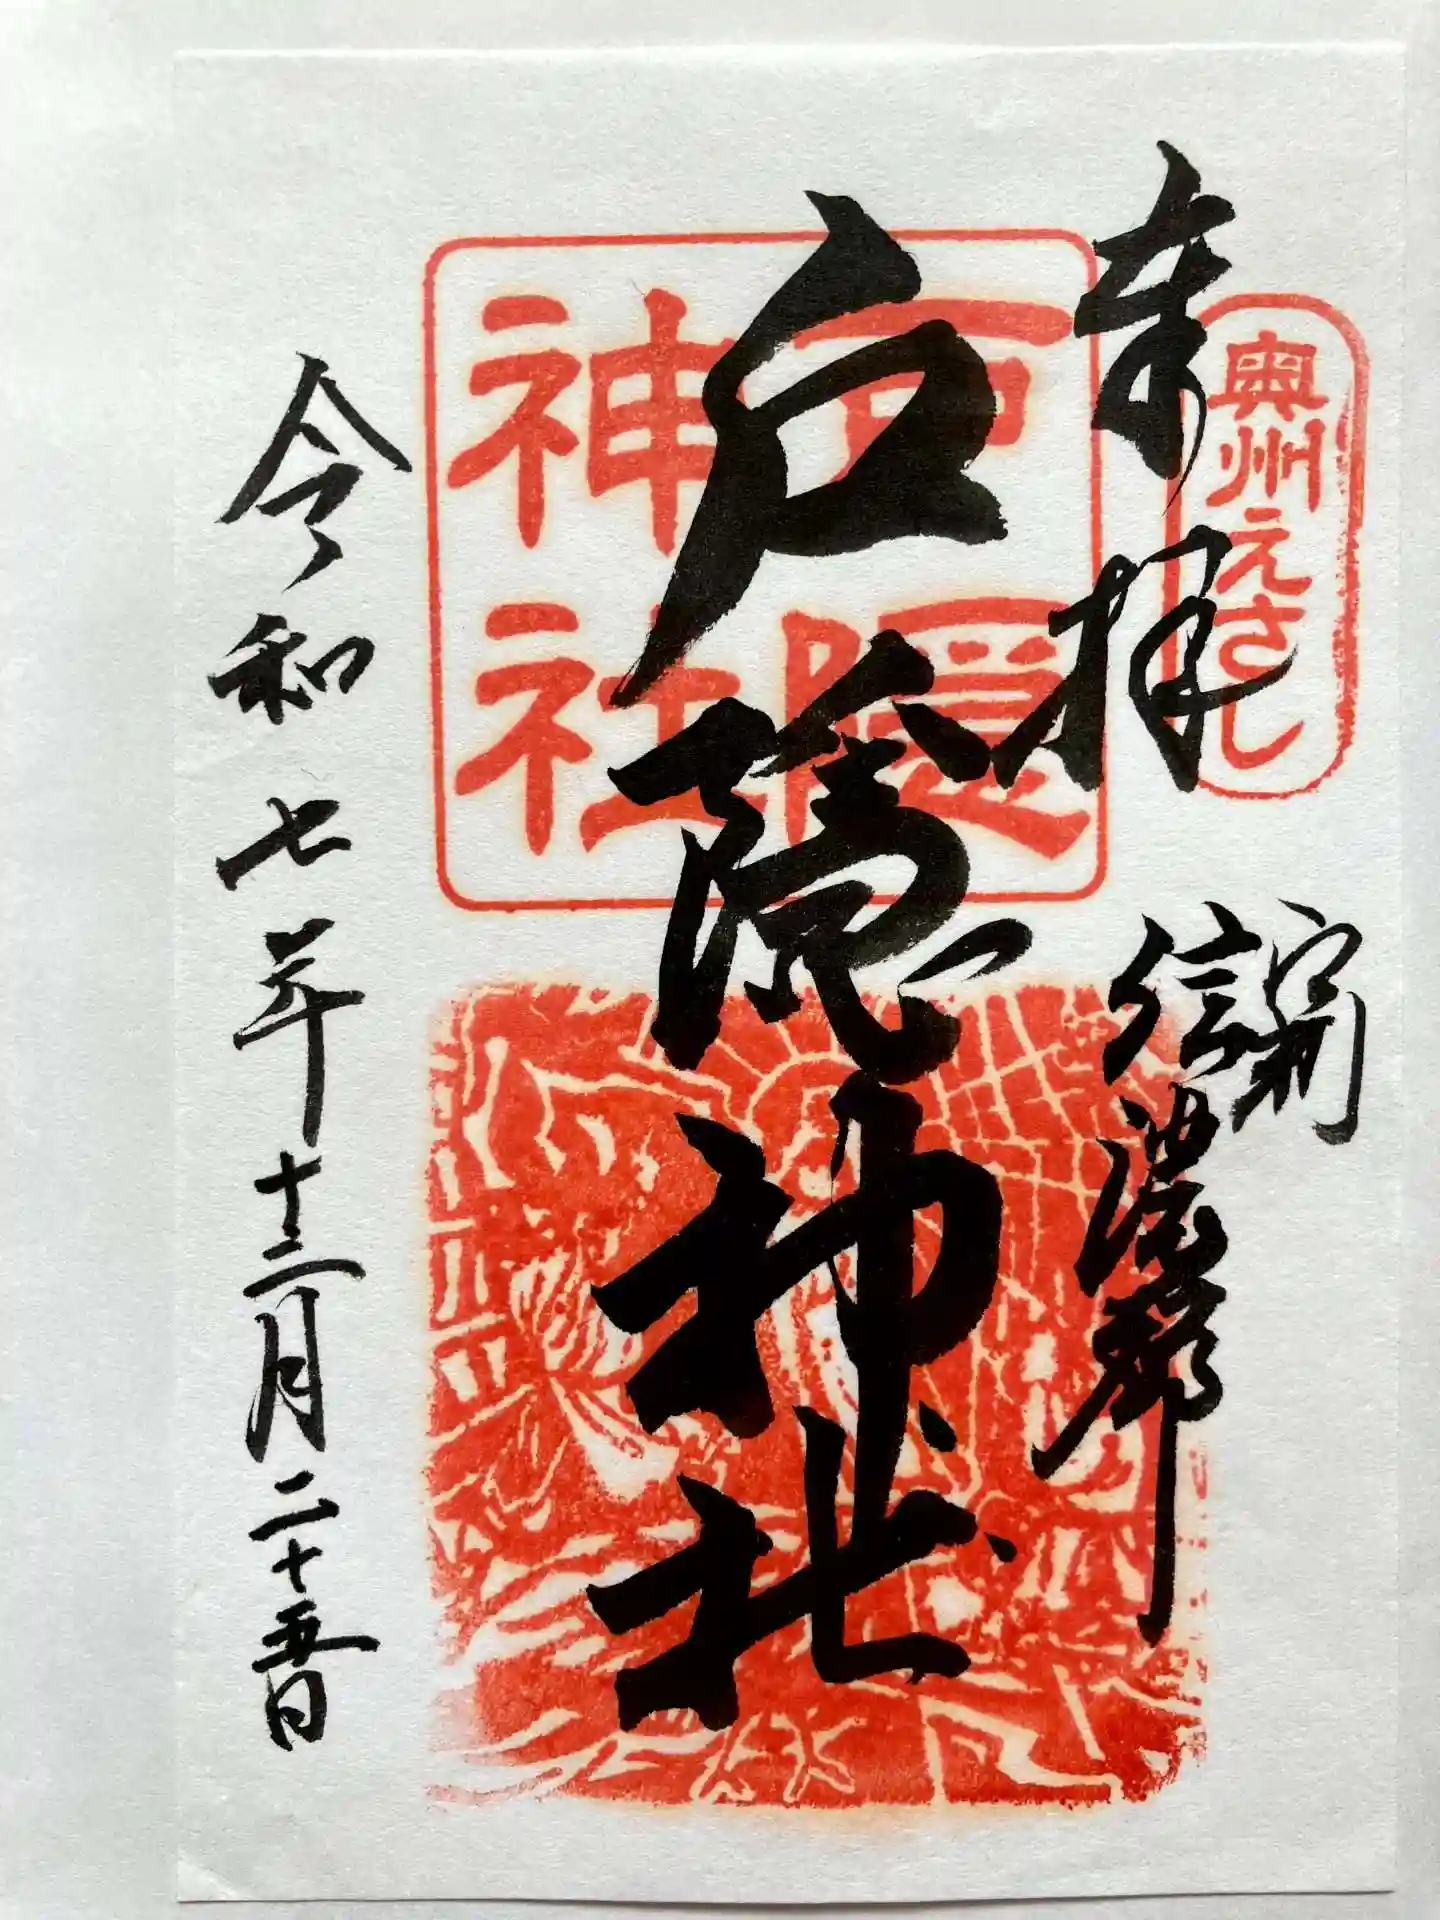 奉拝
奥州えさし
信濃
戸隠神社
戸隠
神社
令和七年十二月二十五日